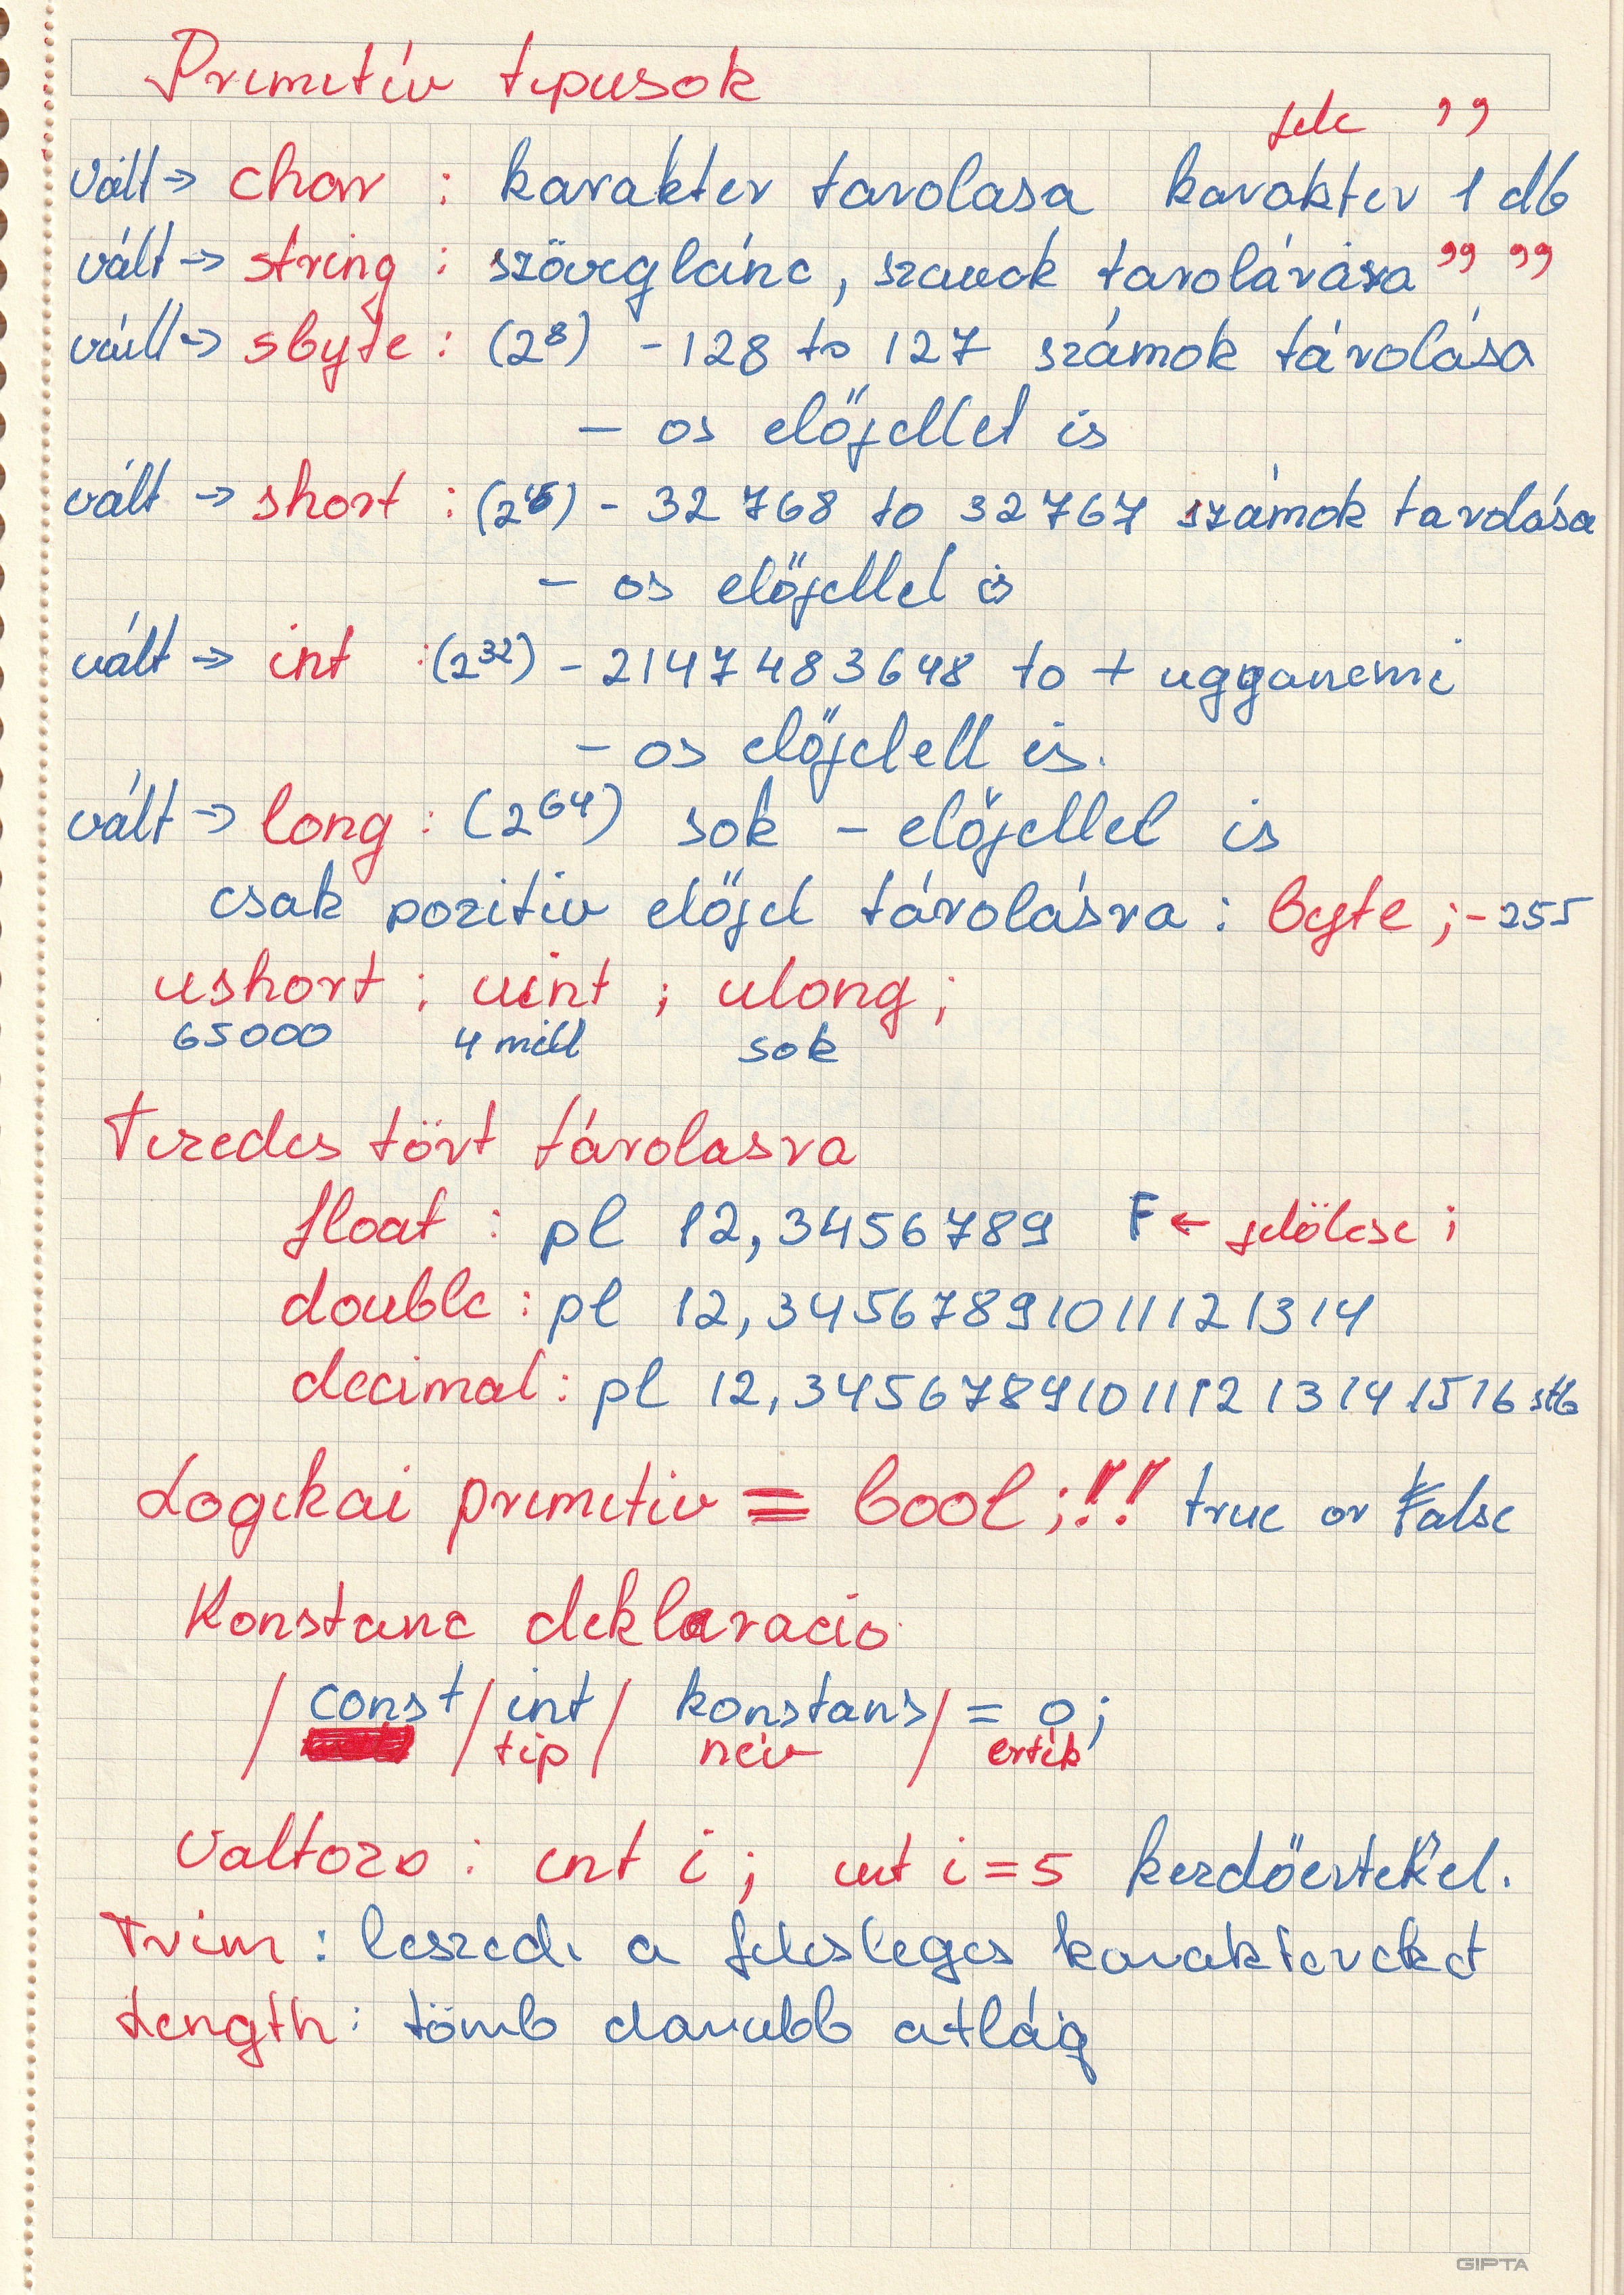 Primitív tipusok
fele ’ ’
vált → char : karakter tarolasa karakter 1 db
vált → string : szöveglánc, szavak tarolárása ” ”
vált → sbyte : (2⁸) -128 to 127 számok tárolása
- os előjellel is
vált → short : (2¹⁶) - 32 768 to 32767 számok tarolása
- os előjellel is
vált → int : (2³²) - 2147483648 to + ugyanenni
- os előjelell is.
vált → long : (2⁶⁴) sok - előjellel is
csak pozitiv előjel tárolásra : byte ; - 255
ushort ; uint ; ulong ;
65000 4 mill sok
Tizedes tört tárolasra
float : pl 12,3456789 F ← jelölése ;
double : pl 12,34567891011121314
decimal : pl 12,345678910111213141516 stb
Logikai primitiv = bool ; !! true or False
Konstanc deklaracio
/ const / int / konstans / = 0 ;
/ tip / név / érték
Valtozo : int i ; int i = 5 kezdőertekel.
Trim : leszedi a felesleges karaktereket
Length : tömb darabb atlág
GIPTA